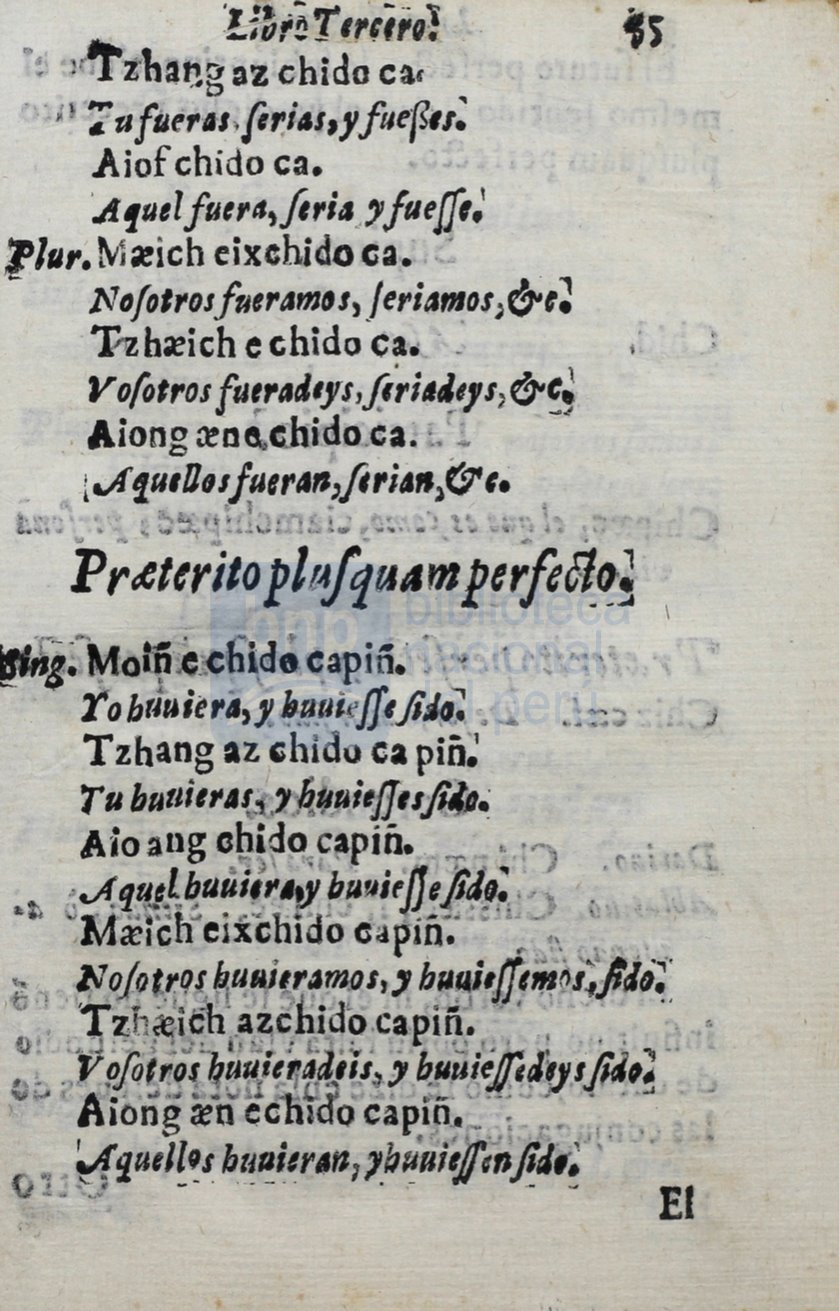 Libro Tercero. 55
Tzhang az chido ca.
Tu fueras, ſerias, y fueßes.
Aiof chido ca.
Aquel fuera, ſeria y fueſſe.
Plur. Mæich eixchido ca.
Noſotros fueramos, ſeriamos, &c.
Tzhæich e chido ca.
Voſotros fueradeys, ſeriadeys, &c.
Aiong æn e chido ca.
Aquellos fueran, ſerian, &c.
Præterito pluſquam perfecto.
Sing. Moiñ e chido capiñ.
Yo huuiera, y huuieſſe ſido.
Tzhang az chido ca piñ.
Tu huuieras, y huuieſſes ſido.
Aio ang chido capiñ.
Aquel huuiera, y huuieſſe ſido.
Mæich eixchido capiñ.
Noſotros huuieramos, y huuieſſemos, ſido.
Tzhæich azchido capiñ.
Voſotros huuieradeis, y huuieſſedeys ſido.
Aiong æn echido capiñ.
Aquellos huuieran, y huuieſſen ſido.
El
biblioteca
nacional
del perú